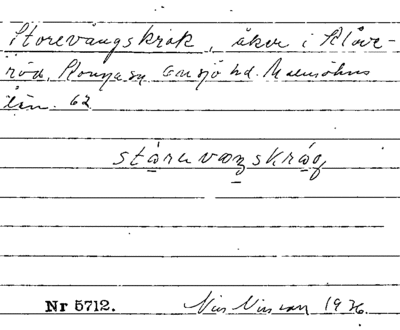 Storevångskrok, åker i Klöve-
röd, Konga sn Onsjö hd. Malmöhus
län. 62
ståravaŋskråg
Nr 5712. Nils Nilsson 1926.